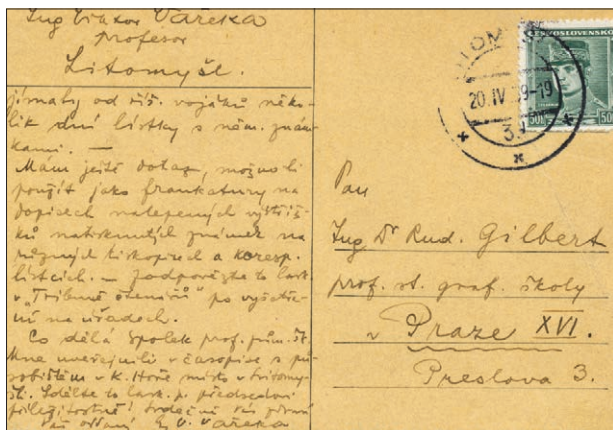 Ing Viktor Vařeka
profesor
Litomyšl.
jímaty od říš. vojáků něko-
lik dní lístky s něm. znám-
kami. —
Mám ještě dotaz, možno li
použít jako frankatury na
dopisech nalepených výstřiž-
ků natisknutých známek na
různých tiskopisech a koresp.
lístcích. — Zodpovězte to lask.
v „Tribuně čtenářů“ po vyšetře-
ní na úřadech.
Co dělá Spolek prof. prům. šk.
Mne uveřejnili v časopise s pů-
sobištěm v K. Hoře místo v Litomy-
šli. Sdělte to lask. p. předsedovi
příležitostně! Srdečně Vás zdraví
Váš oddaný V. Vařeka
ČESKOSLOVENSKO
50h 50
20. IV 39-19
Pan
Ing Dr Rud. Gilbert
prof. st. graf. školy
v Praze XVI.
Preslova 3.